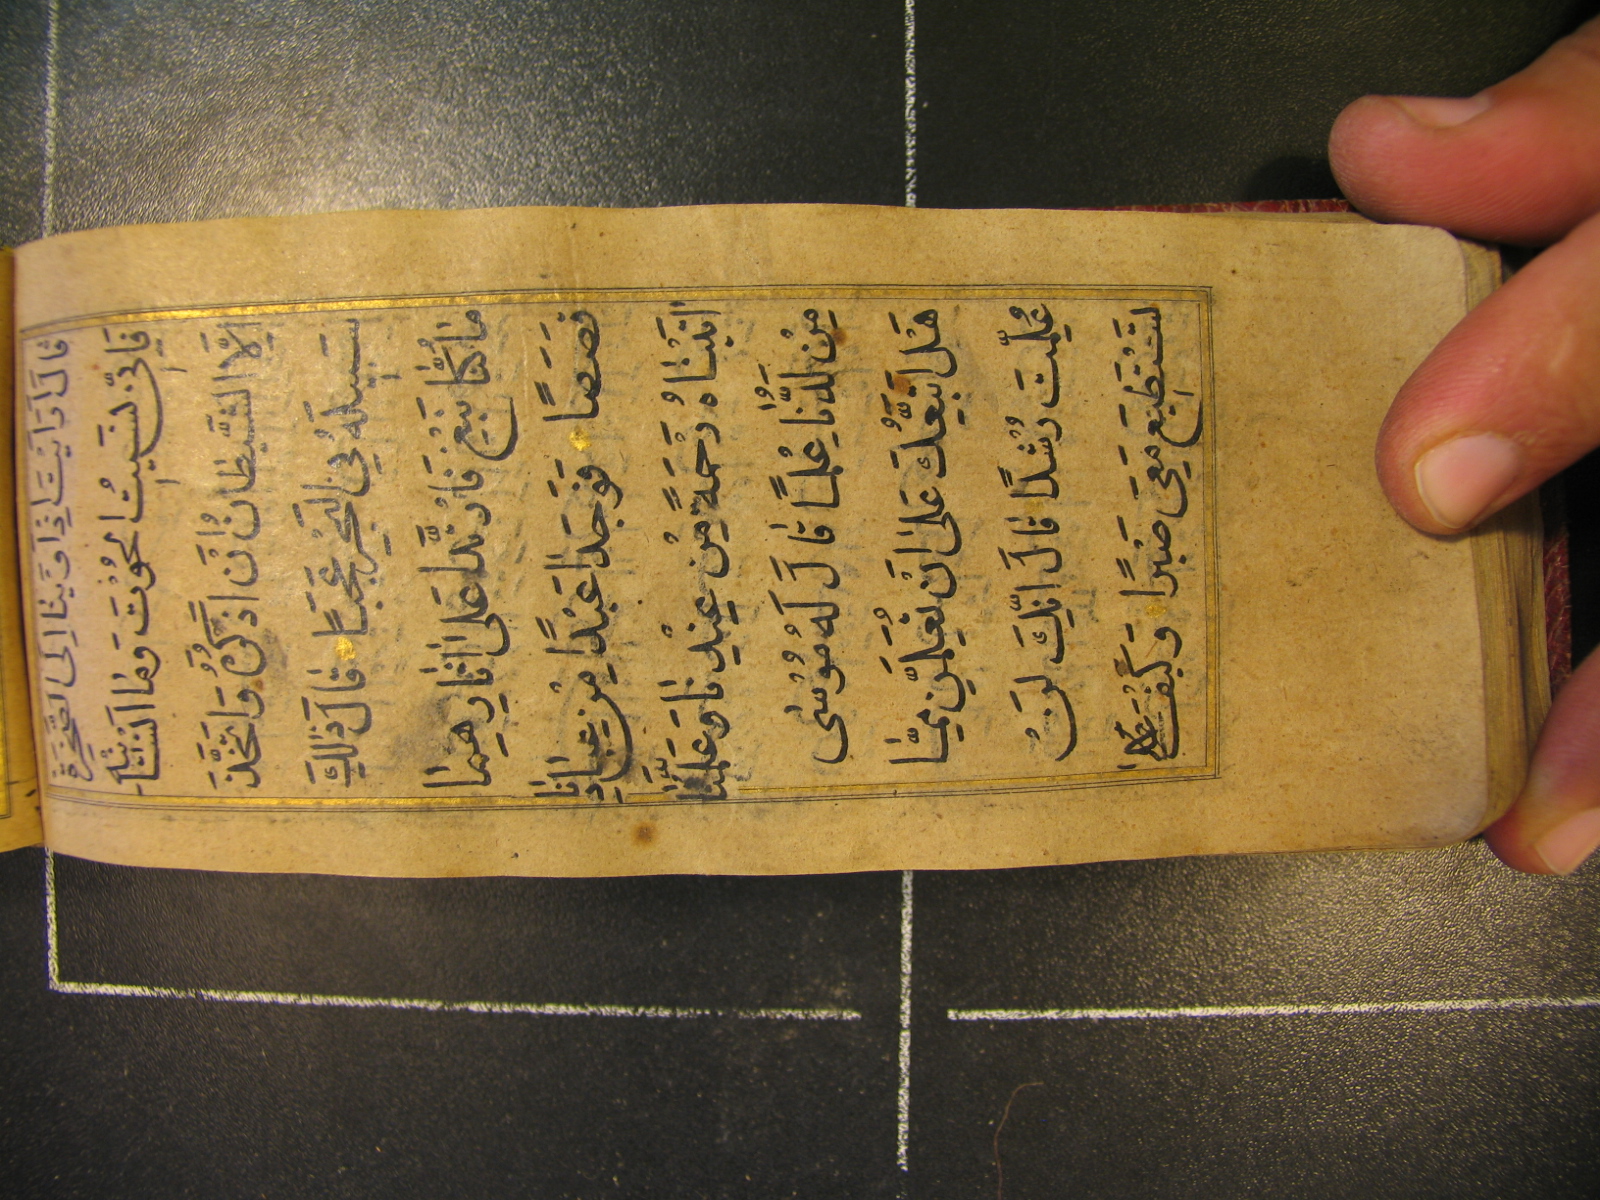 قَالَ اَرَاَيْتَ اِذْ اَوَيْنَا اِلَى الصَّخْرَةِ
فَاِنِّي نَسِيتُ الْحُوْتَ وَمَا اَنْسَانِيْهُ
اِلَّا الشَّيْطَانُ اَنْ اَذْكُرَهُ وَاتَّخَذَ
سَبِيلَهُ فِي الْبَحْرِ عَجَبًا قَالَ ذٰلِكَ
مَا كُنَّا نَبْغِ فَارْتَدَّا عَلٰى اٰثَارِهِمَا
قَصَصًا فَوَجَدَا عَبْدًا مِنْ عِبَادِنَا
اٰتَيْنَاهُ رَحْمَةً مِنْ عِنْدِنَا وَعَلَّمْنَاهُ
مِنْ لَدُنَّا عِلْمًا قَالَ لَهُ مُوْسٰى
هَلْ اَتَّبِعُكَ عَلٰى اَنْ تُعَلِّمَنِ مِمَّا
عُلِّمْتَ رُشْدًا قَالَ اِنَّكَ لَنْ
تَسْتَطِيْعَ مَعِيَ صَبْرًا وَكَيْفَ